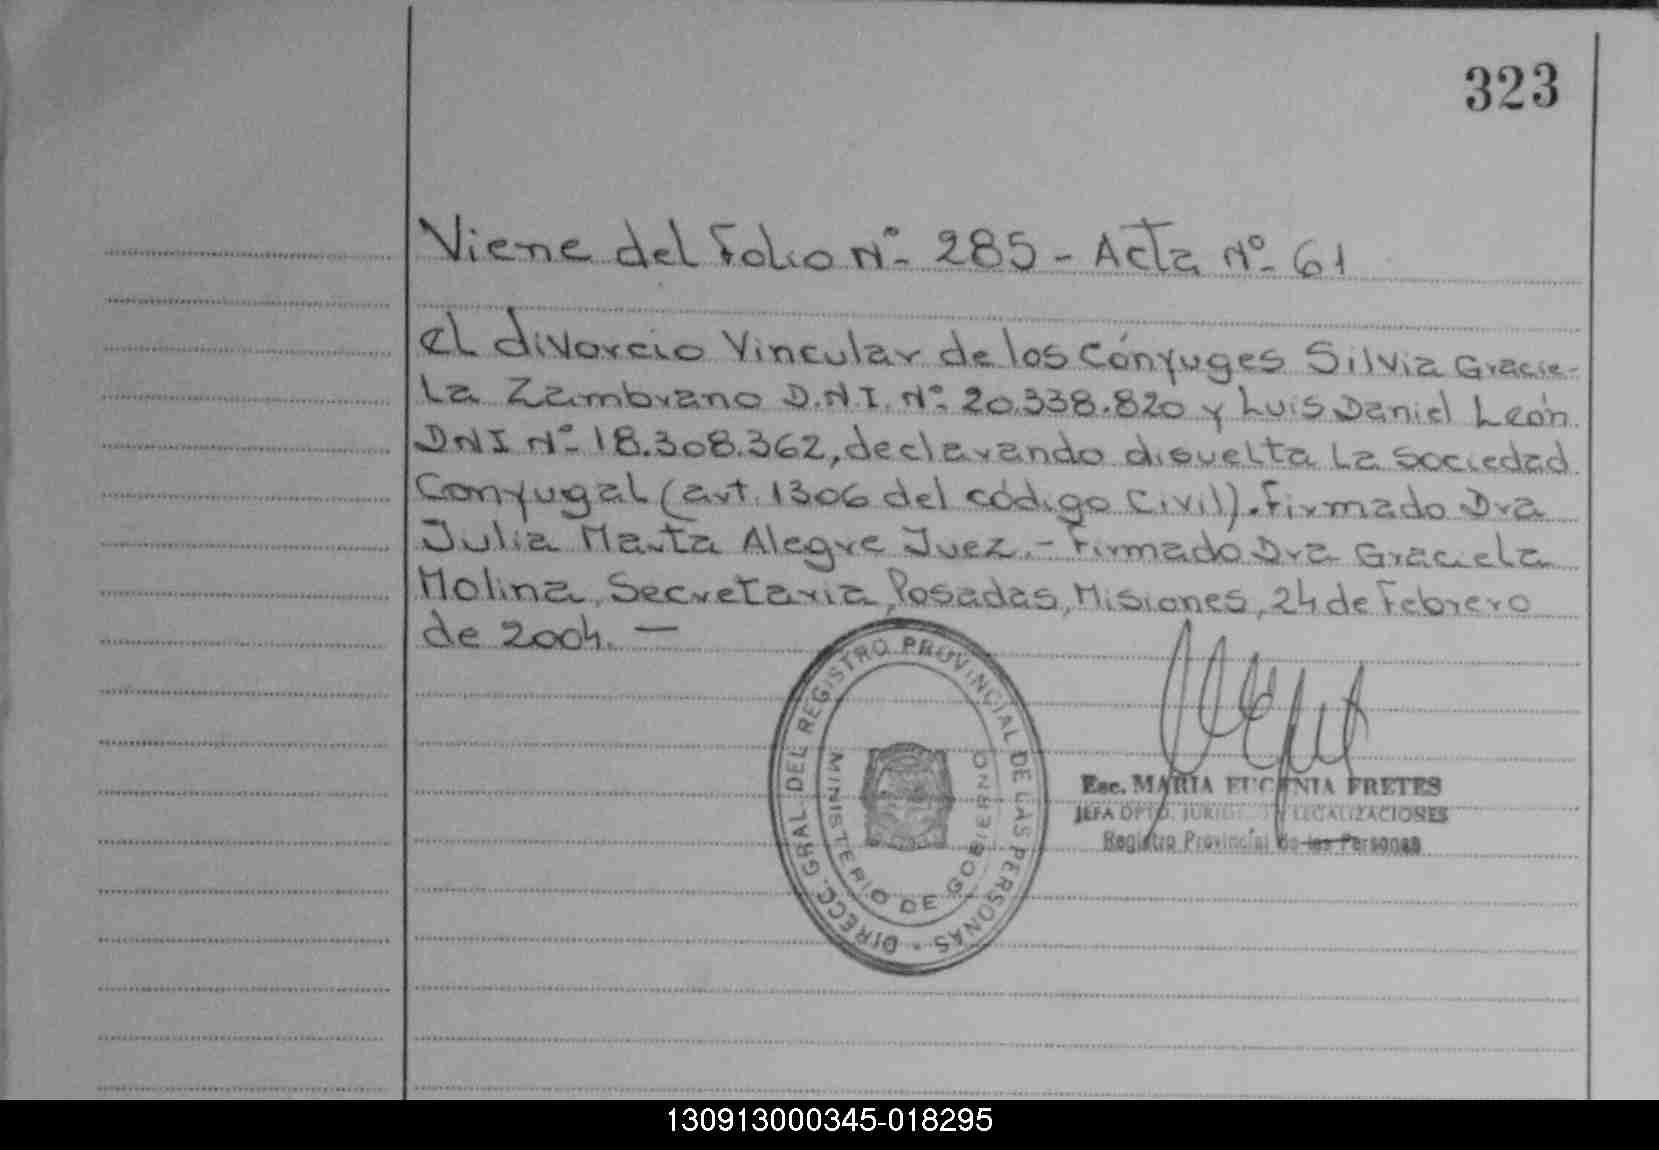 323
Viene del Folio Nº 285 - Acta Nº 61
el divorcio Vincular de los Cónyuges Silvia Gracie-
la Zambrano D.N.I. Nº 20.338.820 y Luis Daniel León
DNI Nº 18.308.362, declarando disuelta la sociedad
Conyugal (art. 1306 del código Civil). Firmado Dra
Julia Marta Alegre Juez.- Firmado Dra Graciela
Molina, Secretaria, Posadas, Misiones, 24 de Febrero
de 2004. —
DIRECC. GRAL. DEL REGISTRO PROVINCIAL DE LAS PERSONAS
MINISTERIO DE GOBIERNO
Esc. MARIA EUGENIA FRETES
JEFA DPTO. JURID. Y LEGALIZACIONES
Registro Provincial de las Personas
130913000345-018295